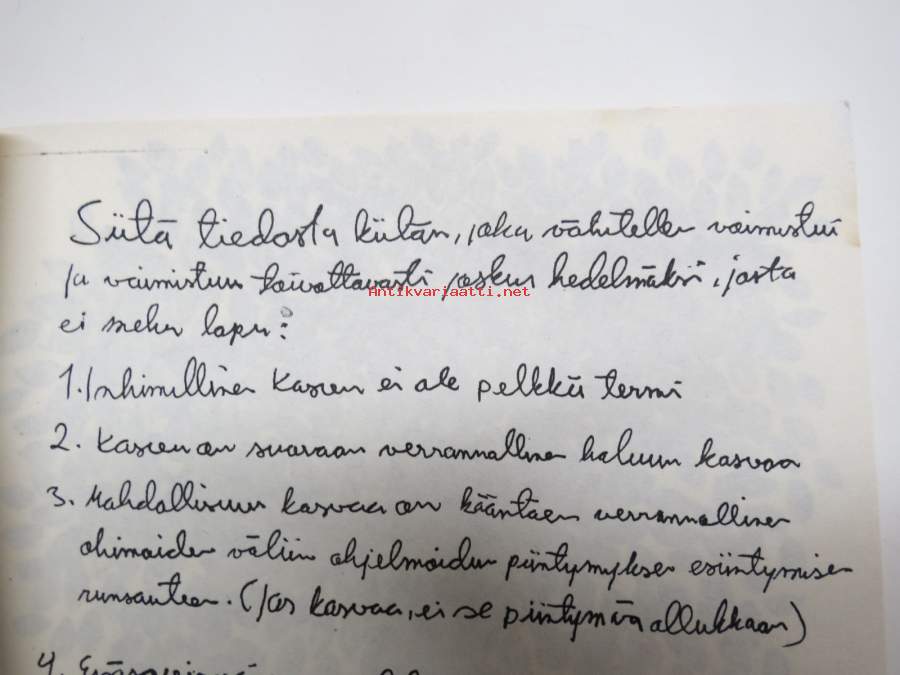 Siitä tiedosta kiitän, joka vähitellen voimistui
ja voimistuu toivottavasti joskus hedelmäksi, josta
Antikvariaatti.net
ei mehu lopu:
1. Inhimillinen kasvu ei ole pelkkä termi
2. Kasvu on suoraan verrannollinen haluun kasvaa
3. Mahdollisuus kasvaa on kääntäen verrannollinen
ohimoiden väliin ohjelmoidun piintymyksen esiintymisen
runsauteen. (Jos kasvaa, ei se piintymä allukkaan)
4.